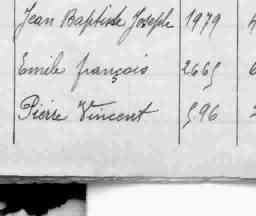 Jean Baptiste Joseph 1979
Emile françois 2665
Pierre Vincent 596